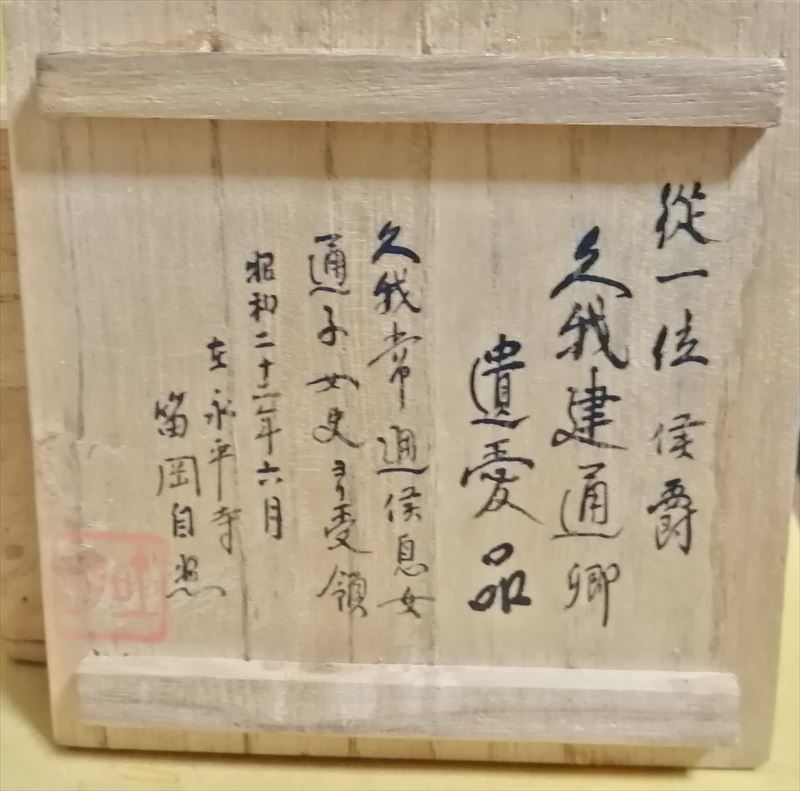 從一位侯爵
久我建通卿
遺愛品
久我常通侯息女
通子女史ヨリ受領
昭和二十二年六月
在永平寺
笛岡自照